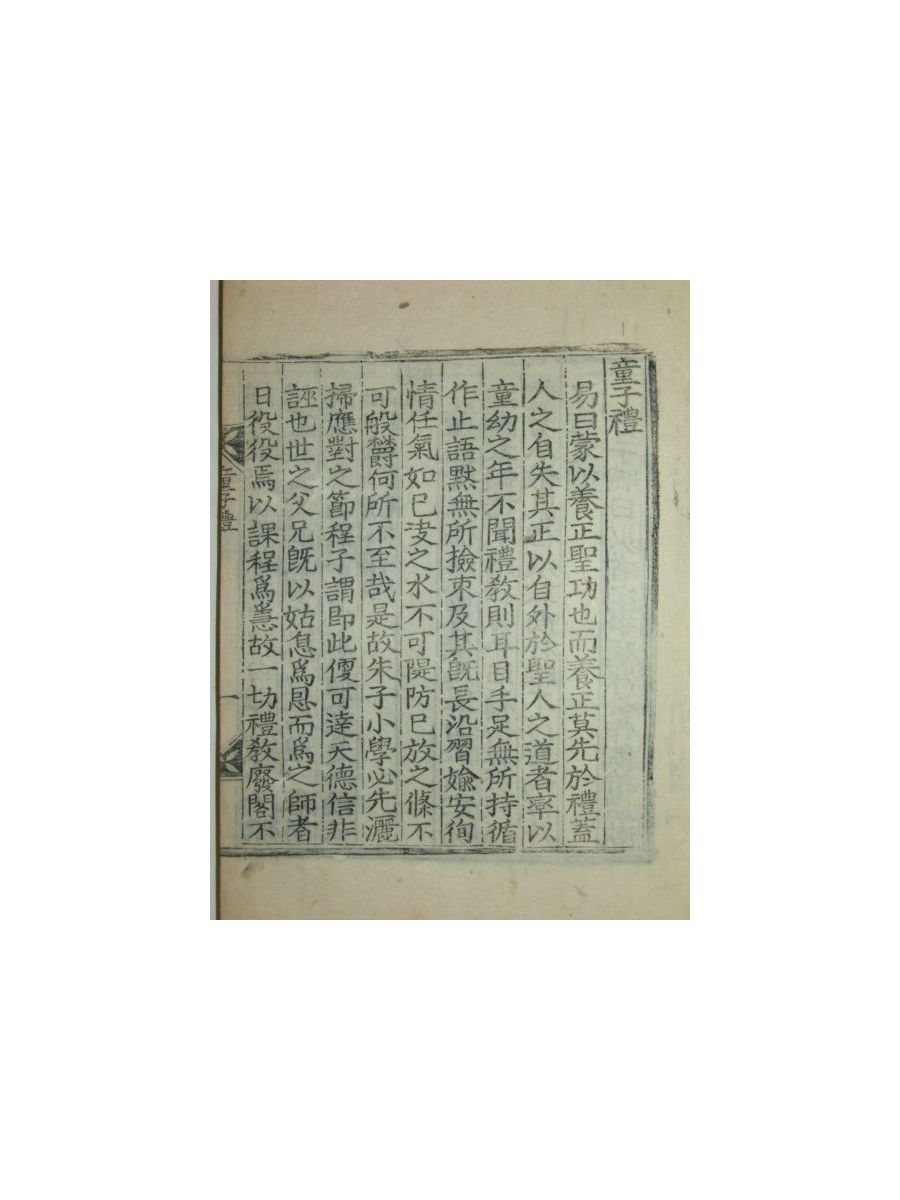 童子禮
易曰蒙以養正聖功也而養正莫先於禮蓋
人之自失其正以自外於聖人之道者率以
童幼之年不聞禮敎則耳目手足無所持循
作止語黙無所撿束及其旣長沿習媮安徇
情任氣如已淩之水不可隄防已放之條不
可般欝何所不至哉是故朱子小學必先灑
掃應對之節程子謂卽此便可達天德信非
誣也世之父兄旣以姑息爲恩而爲之師者
日役役焉以課程爲急故一切禮敎廢閣不
童子禮
一